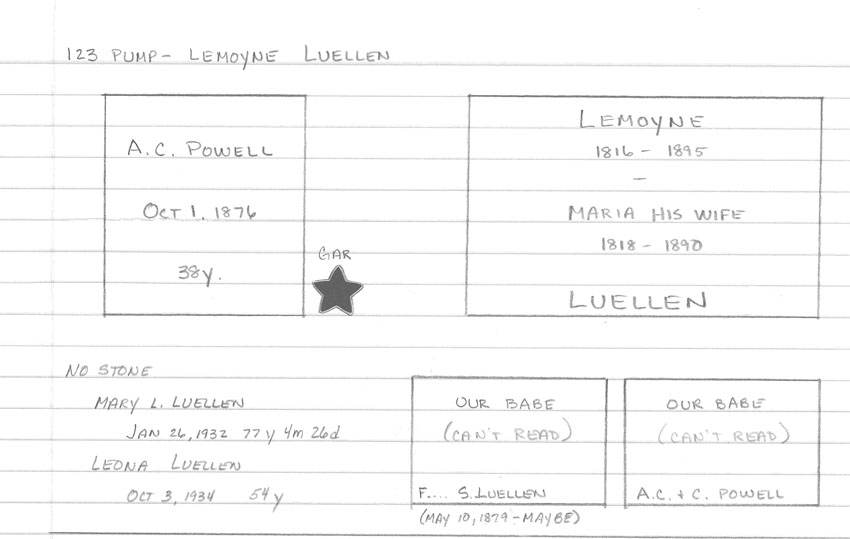 123 PUMP - LEMOYNE LUELLEN
A.C. POWELL
OCT 1, 1876
38y.
GAR
LEMOYNE
1816 - 1895
—
MARIA HIS WIFE
1818 - 1890
LUELLEN
NO STONE
MARY L. LUELLEN
JAN 26, 1932 77 y 4m 26d
LEONA LUELLEN
OCT 3, 1934 54 y
OUR BABE
(CAN'T READ)
F.... S. LUELLEN
(MAY 10, 1879 - MAYBE)
OUR BABE
(CAN'T READ)
A.C. + C. POWELL